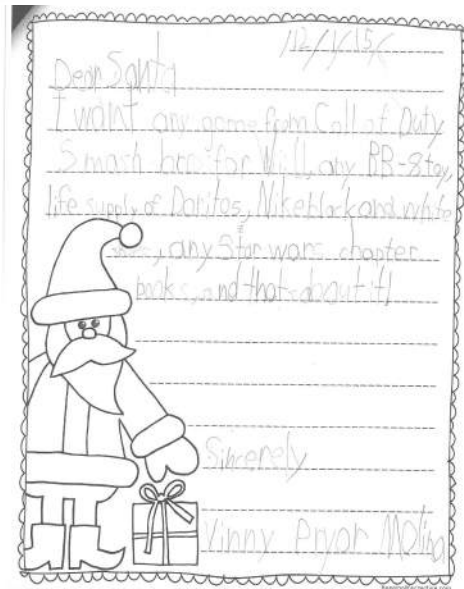 12/1/15
Dear Santa
I want any game from Call of Duty
Smash bros for Wii U, any BB-8 toy,
life supply of Doritos, Nike black and white
any Star wars chapter
books, and that about it!
Sincerely
Vinny Pryor Molina